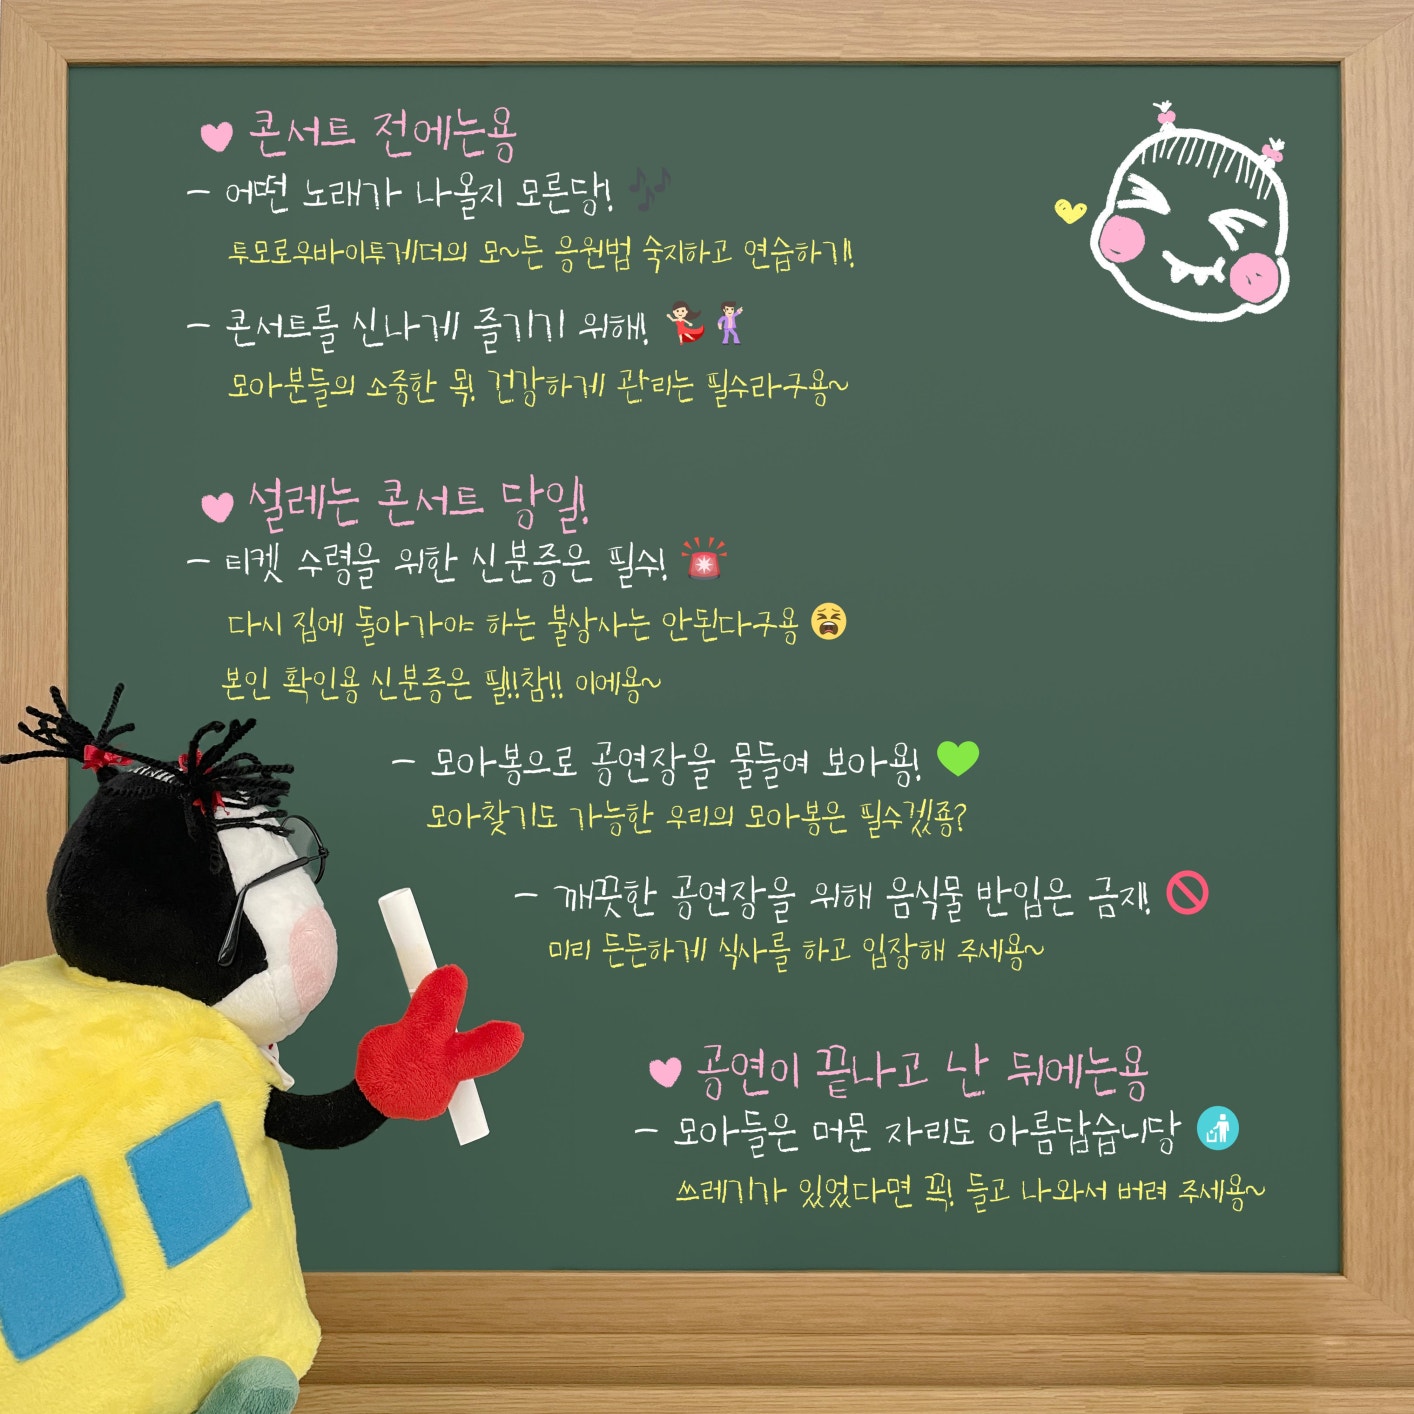 ♥ 콘서트 전에는용
- 어떤 노래가 나올지 모른당! 🎶
투모로우바이투게더의 모~든 응원법 숙지하고 연습하기!
- 콘서트를 신나게 즐기기 위해! 💃🕺
모아분들의 소중한 목! 건강하게 관리는 필수라구용~
♥ 설레는 콘서트 당일!
- 티켓 수령을 위한 신분증은 필수! 🚨
다시 집에 돌아가야 하는 불상사는 안된다구용 😫
본인 확인용 신분증은 필!!참!! 이에용~
- 모아봉으로 공연장을 물들여 보아용! 💚
모아찾기도 가능한 우리의 모아봉은 필수겠죵?
- 깨끗한 공연장을 위해 음식물 반입은 금지! 🚫
미리 든든하게 식사를 하고 입장해 주세용~
♥ 공연이 끝나고 난 뒤에는용
- 모아들은 머문 자리도 아름답습니당 🚮
쓰레기가 있었다면 꼭! 들고 나와서 버려 주세용~